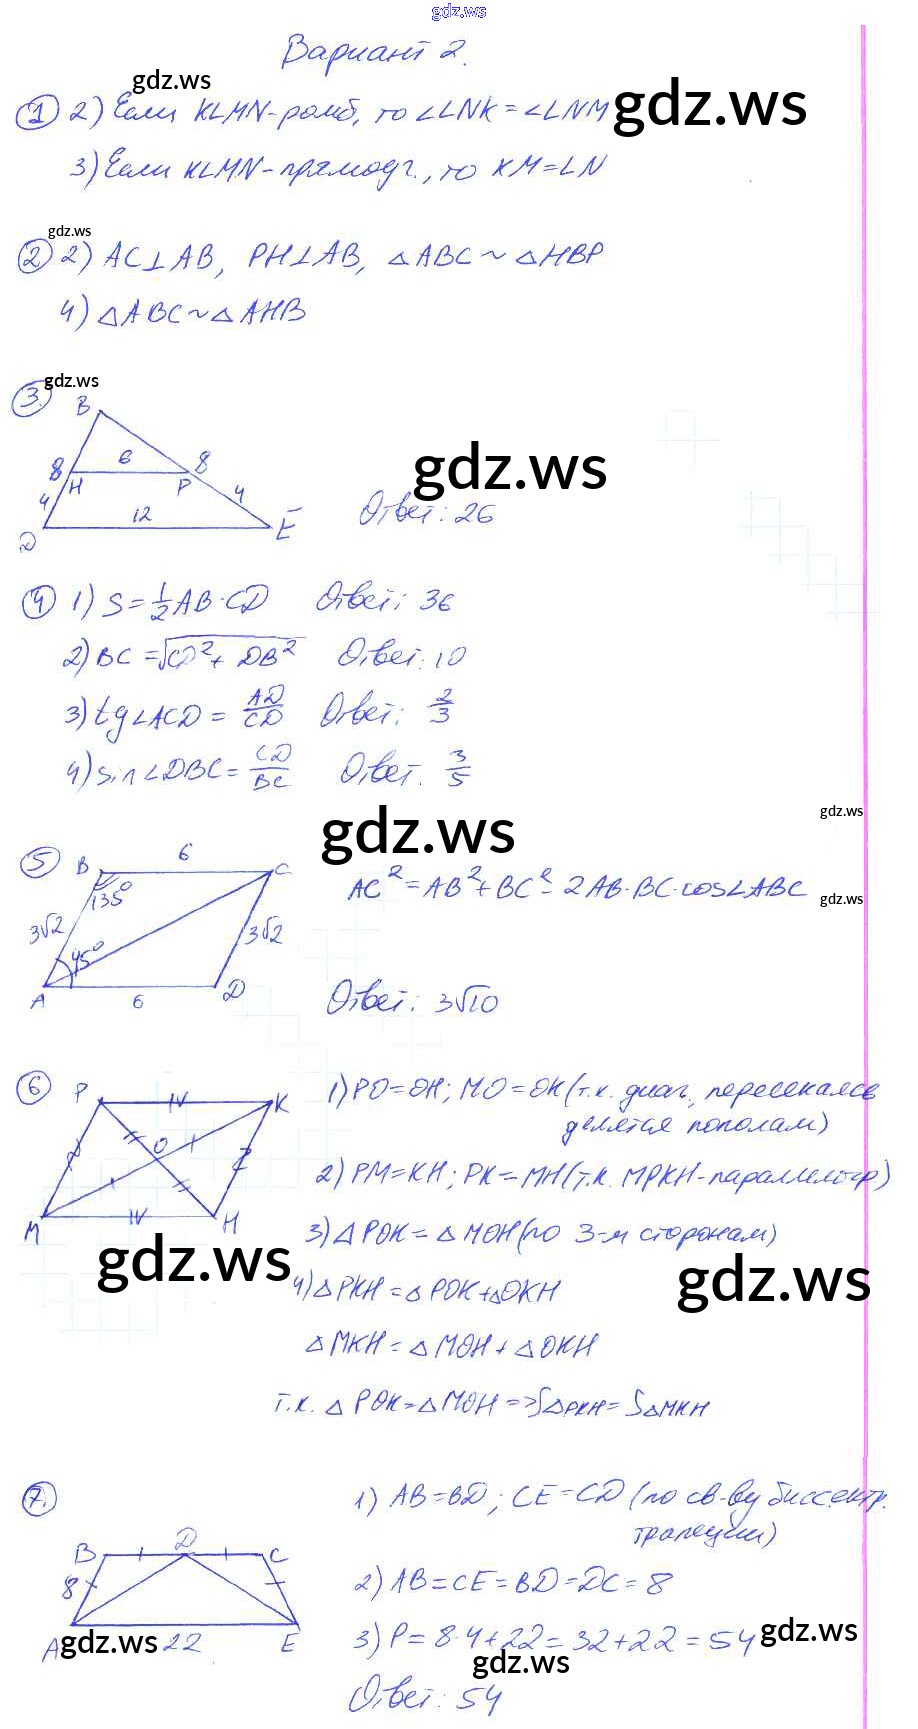 gdz.ws
Вариант 2.
gdz.ws
gdz.ws
① 2) Если KLMN-ромб, то ∠LNK=∠LNM
3) Если KLMN-прямоуг., то KM=LN
gdz.ws
② 2) AC⊥AB, PH⊥AB, △ABC~△HBP
4) △ABC~△AHB
gdz.ws
③.
B
8 6 8
H P
4 4
12
D E
gdz.ws
Ответ: 26
④ 1) S=1/2 AB·CD Ответ: 36
2) BC=√(CD²+DB²) Ответ: 10
3) tg∠ACD = AD/CD Ответ: 2/3
4) sin∠DBC = CD/BC Ответ. 3/5
gdz.ws
gdz.ws
⑤ B 6 C
135°
3√2 3√2
45°
A 6 D
AC²=AB²+BC²-2AB·BC·cos∠ABC
gdz.ws
Ответ: 3√10
⑥ P K
O
M H
1) PO=OH; MO=OK (т.к. диаг., пересекаясь
делятся пополам)
2) PM=KH; PK=MH (т.к. MPKH-параллелогр)
3) △POK=△MOH (по 3-м сторонам)
gdz.ws
gdz.ws
4) △PKH=△POK+△OKH
△MKH=△MOH+△OKH
т.к. △POK=△MOH=>S△PKH=S△MKH
⑦.
B D C
8
A 22 E
1) AB=BD; CE=CD (по св-ву биссектр.
трапеции)
2) AB=CE=BD=DC=8
3) P=8·4+22=32+22=54
gdz.ws
gdz.ws
gdz.ws
Ответ: 54